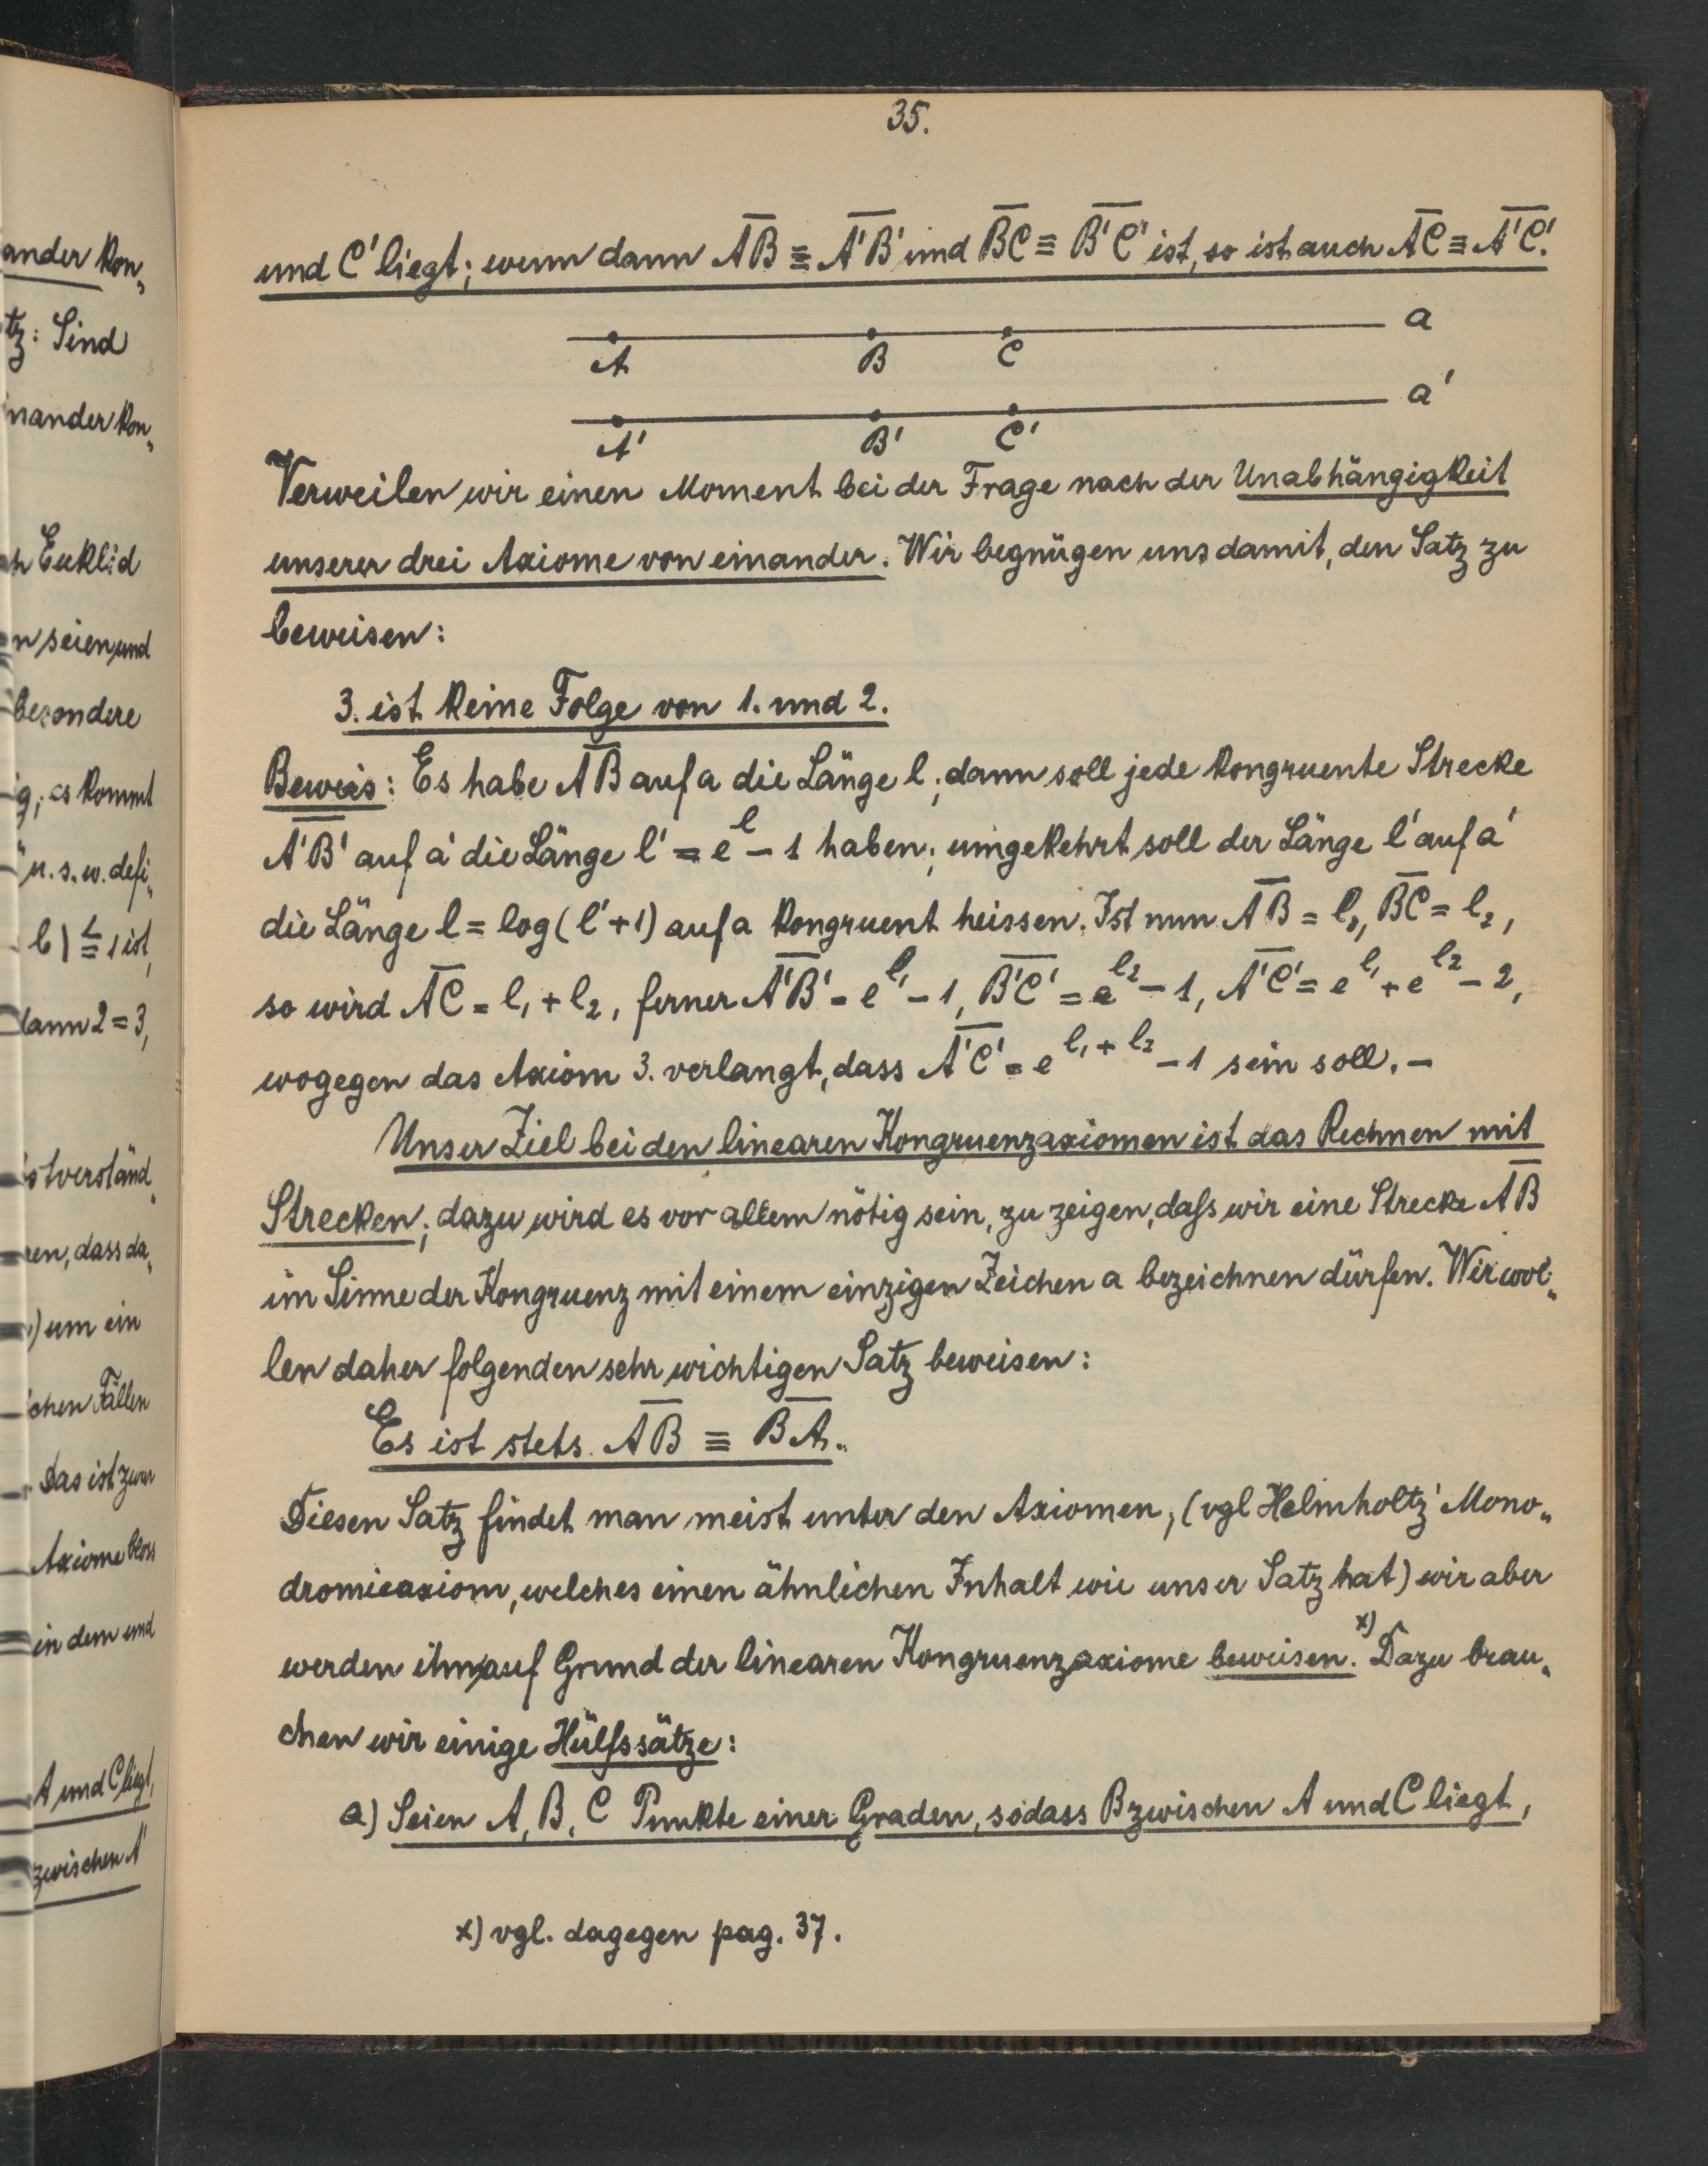 ander kon„
tz: Sind
nander kon„
h Euklid
n seien und
besondere
g; es kommt
u.s.w. defi„
b) ≦ 1 ist,
dann 2 = 3,
stverständ„
ren, dass da„
) um ein
ichen Fällen
Das ist zwar
Axiome bloss
in dem und
A und C liegt,
zwischen A'
35.
und C' liegt; wenn dann A̅B̅ ≡ A̅'̅B̅'̅ und B̅C̅ ≡ B̅'̅C̅'̅ ist, so ist auch A̅C̅ ≡ A̅'̅C̅'̅.
a
A B C
a'
A' B' C'
Verweilen wir einen Moment bei der Frage nach der Unabhängigkeit
unserer drei Axiome von einander. Wir begnügen uns damit, den Satz zu
beweisen:
3. ist keine Folge von 1. und 2.
Beweis: Es habe A̅B̅ auf a die Länge l; dann soll jede kongruente Strecke
A̅'̅B̅'̅ auf a' die Länge l' = e^l - 1 haben; umgekehrt soll der Länge l' auf a'
die Länge l = log(l' + 1) auf a kongruent heissen. Ist nun A̅B̅ = l₁, B̅C̅ = l₂,
so wird A̅C̅ = l₁ + l₂, ferner A̅'̅B̅'̅ = e^{l₁} - 1, B̅'̅C̅'̅ = e^{l₂} - 1, A̅'̅C̅'̅ = e^{l₁} + e^{l₂} - 2,
wogegen das Axiom 3. verlangt, dass A̅'̅C̅'̅ = e^{l₁ + l₂} - 1 sein soll. –
Unser Ziel bei den linearen Kongruenzaxiomen ist das Rechnen mit
Strecken; dazu wird es vor allem nötig sein, zu zeigen, daſs wir eine Strecke A̅B̅
im Sinne der Kongruenz mit einem einzigen Zeichen a bezeichnen dürfen. Wir wol„
len daher folgenden sehr wichtigen Satz beweisen:
Es ist stets A̅B̅ ≡ B̅A̅.
Diesen Satz findet man meist unter den Axiomen, (vgl Helmholtz' Mono„
dromieaxiom, welches einen ähnlichen Inhalt wie unser Satz hat) wir aber
werden ihn auf Grund der linearen Kongruenzaxiome beweisen. x) Dazu brau„
chen wir einige Hülfssätze:
a) Seien A, B, C Punkte einer Graden, sodass B zwischen A und C liegt,
x) vgl. dagegen pag. 37.